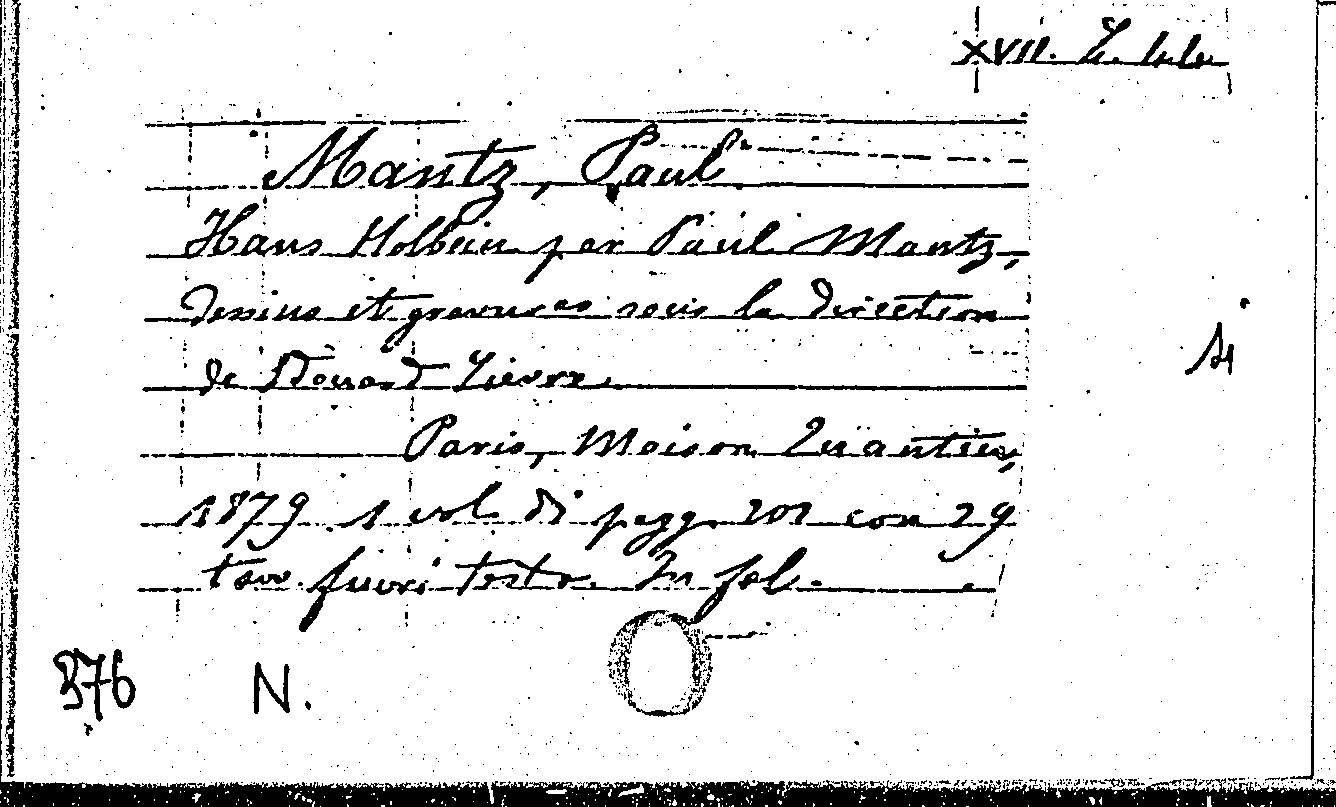 XVII. Z.
Mantz, Paul
Hans Holbein par Paul Mantz,
dessins et gravures sous la direction
de Edouard Lièvre.
Paris, Maison Quantin,
1879 1 vol di pagg. 202 con 29
tav. fuori testo. In fol.
376 N.